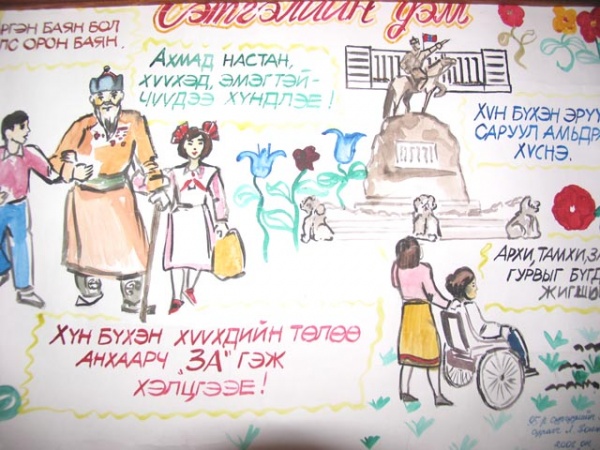 Сэтгэлийн дэм
БАЯН БОЛ
ОРОН БАЯН.
АХМАД НАСТАН,
ХҮҮХЭД, ЭМЭГТЭЙ-
ЧҮҮДЭЭ ХҮНДЛЭЕ!
ХҮН БҮХЭН ЭРҮҮ
САРУУЛ АМЬДРА
ХҮСНЭ.
АРХИ, ТАМХИ,
ГУРВЫГ БҮГД
ЖИГШ
ХҮН БҮХЭН ХҮҮХДИЙН ТӨЛӨӨ
АНХААРЧ „ЗА“ ГЭЖ
ХЭЛЦГЭЭЕ!